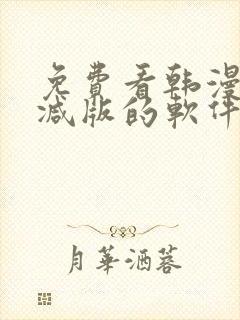 免費看韩漫
减版的軟件
月華酒蓉